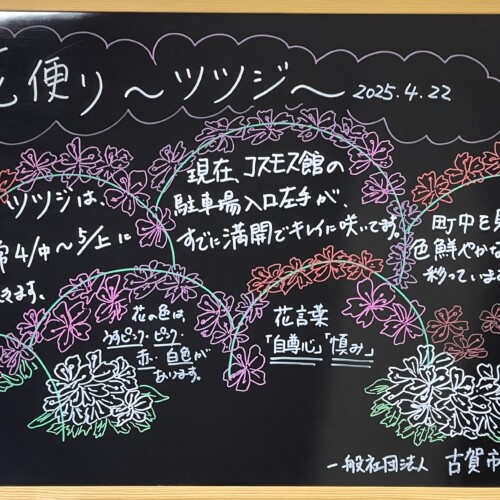 便り～ツツジ～ 2025.4.22
ツツジは、
常4/中～5/上に
きます。
現在、コスモス館の
駐車場入口左手が、
すでに満開でキレイに咲いてます。
町中も見
色鮮やかな
彩っていま
花の色は
うすピンク・ピンク・
赤・白色が
あります。
花言葉
「自尊心」「慎み」
一般社団法人 古賀市